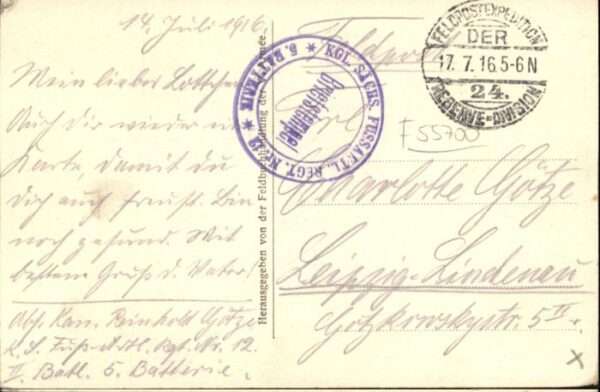 14. Juli 1916
Mein lieber Lottchen
Auch dir wieder ein
Karte, damit du
dich auch freust. Bin
noch gesund. Mit
bestem Gruß d. Vater
Abs. Kan. Reinhold Götze
K. S. Fußartl. Rgt. Nr. 12
II. Batl. 5. Batterie.
Herausgegeben von der Feldbuchhandlung der
Feldpost
KGL. SÄCHS. FUSSARTL. REGT. Nr. 19 ★ 5. BATTERIE ★
Briefstempel
FELDPOSTEXPEDITION
DER
17. 7. 16. 5-6 N
24.
RESERVE-DIVISION
F55700
Frl.
Charlotte Götze
Leipzig-Lindenau
Gotzkowskystr. 5 II.
x